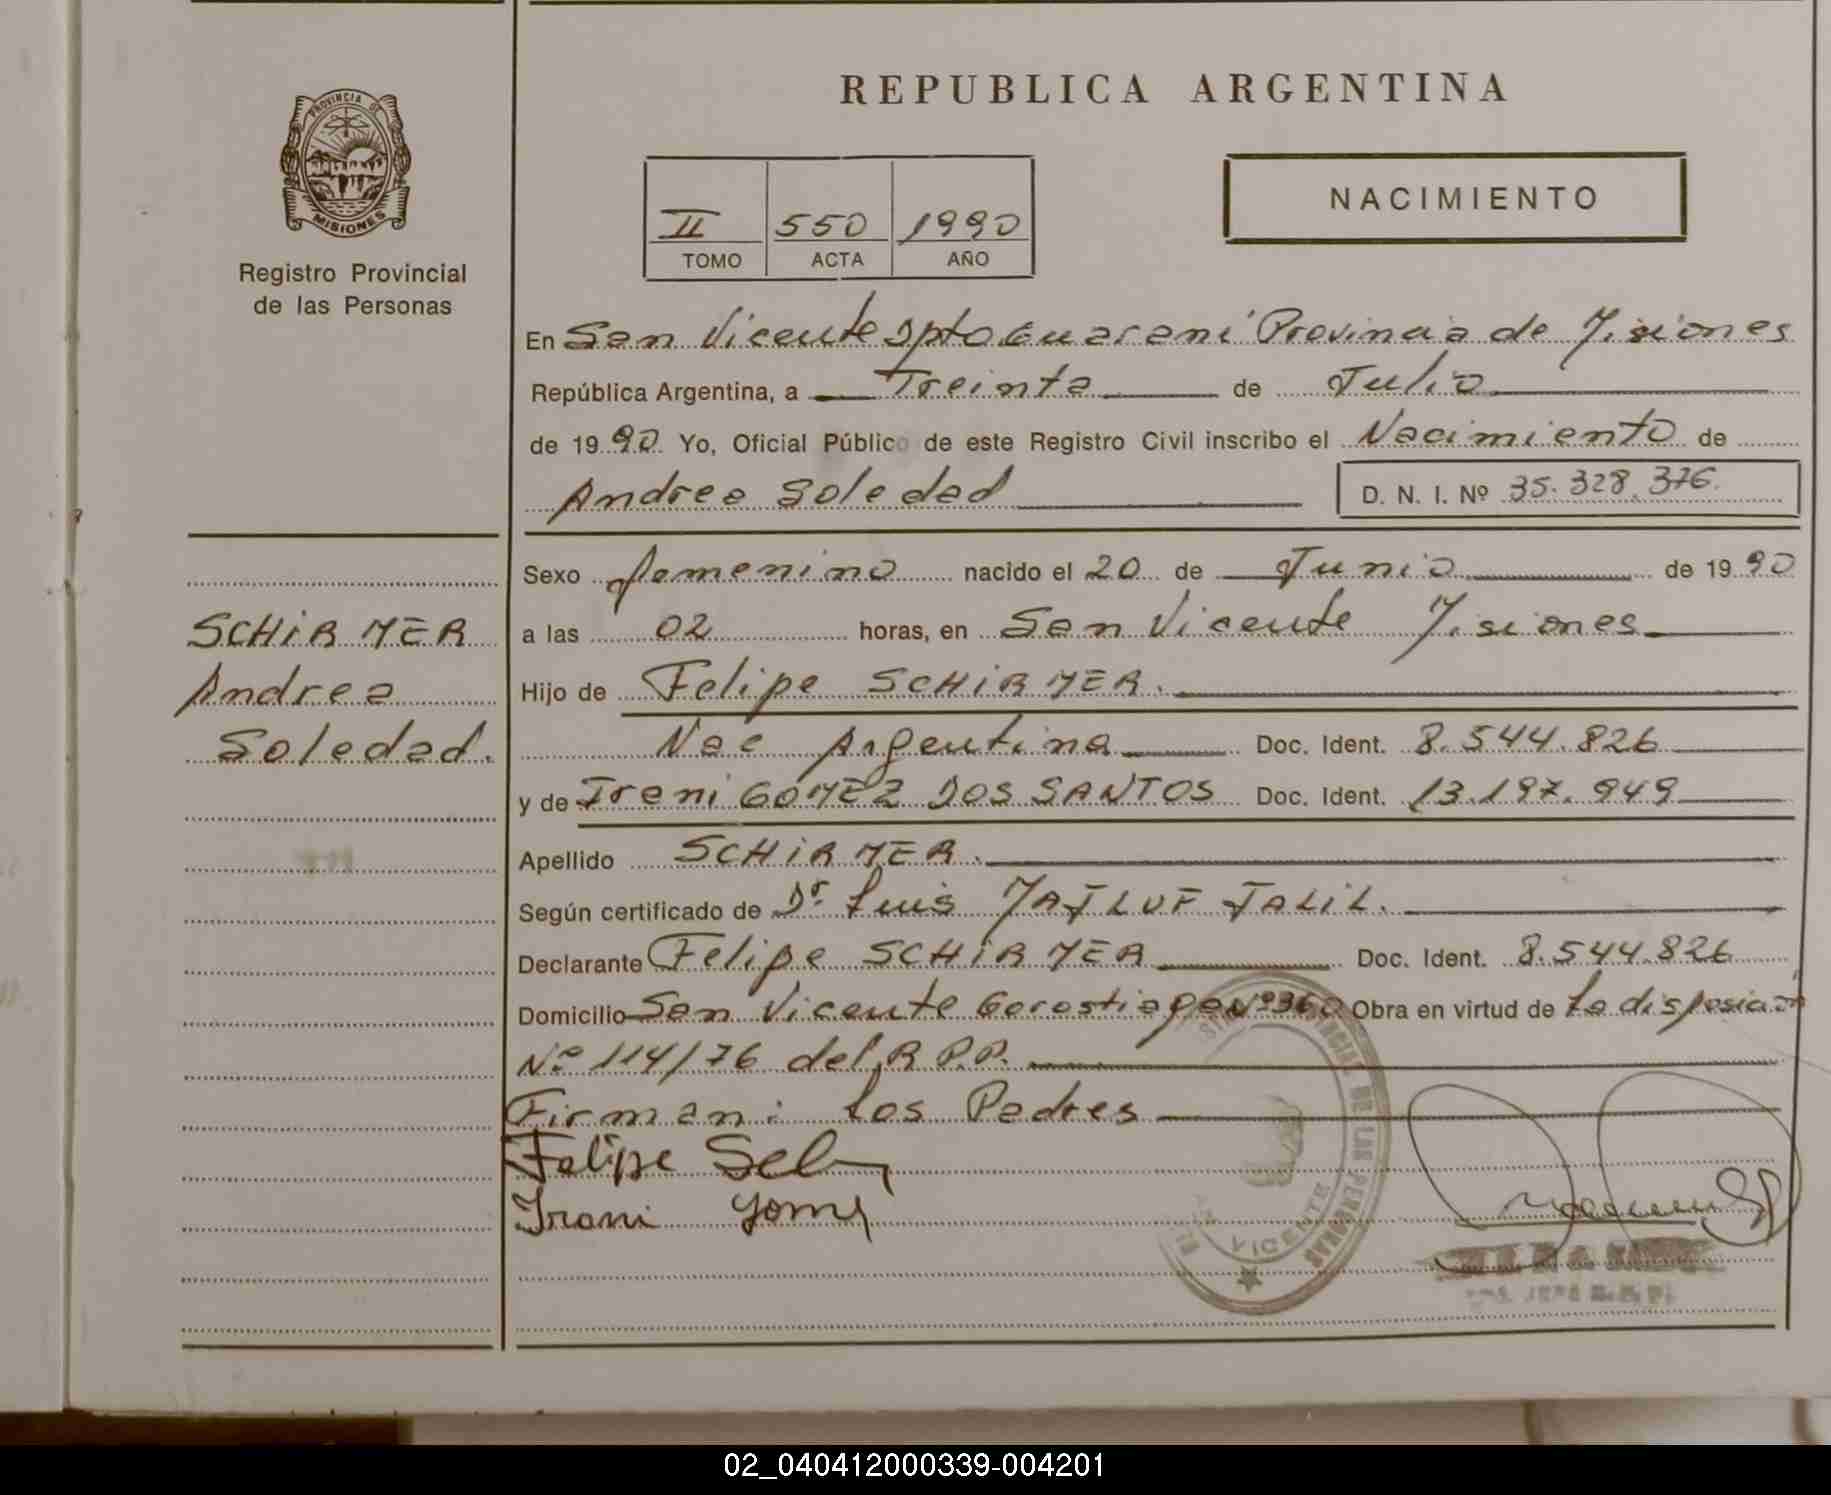 PROVINCIA DE
MISIONES
Registro Provincial
de las Personas
REPUBLICA ARGENTINA
II 550 1990
TOMO ACTA AÑO
NACIMIENTO
En San Vicente Dpto Guaraní Provincia de Misiones
República Argentina, a Treinta de Julio
de 1990 Yo, Oficial Público de este Registro Civil inscribo el Nacimiento de
Andrea Soledad D. N. I. Nº 35.328.376
SCHiRMER
Andrea
Soledad.
Sexo femenino nacido el 20 de Junio de 1990
a las 02 horas, en San Vicente Misiones
Hijo de Felipe SCHiRMER.
Nac Argentina Doc. Ident. 8.544.826
y de Ireni GOMEZ DOS SANTOS Doc. Ident. 13.197.949
Apellido SCHiRMER.
Según certificado de Dr. Luis MAJLUF JALiL.
Declarante Felipe SCHiRMER Doc. Ident. 8.544.826
Domicilio San Vicente Gorostiaga Nº 360 Obra en virtud de La disposicion
Nº 114/76 del R.P.P.
Firman: Los Padres
Felipe
Irani
VICENTE
DE LAS PERSONAS
02_040412000339-004201